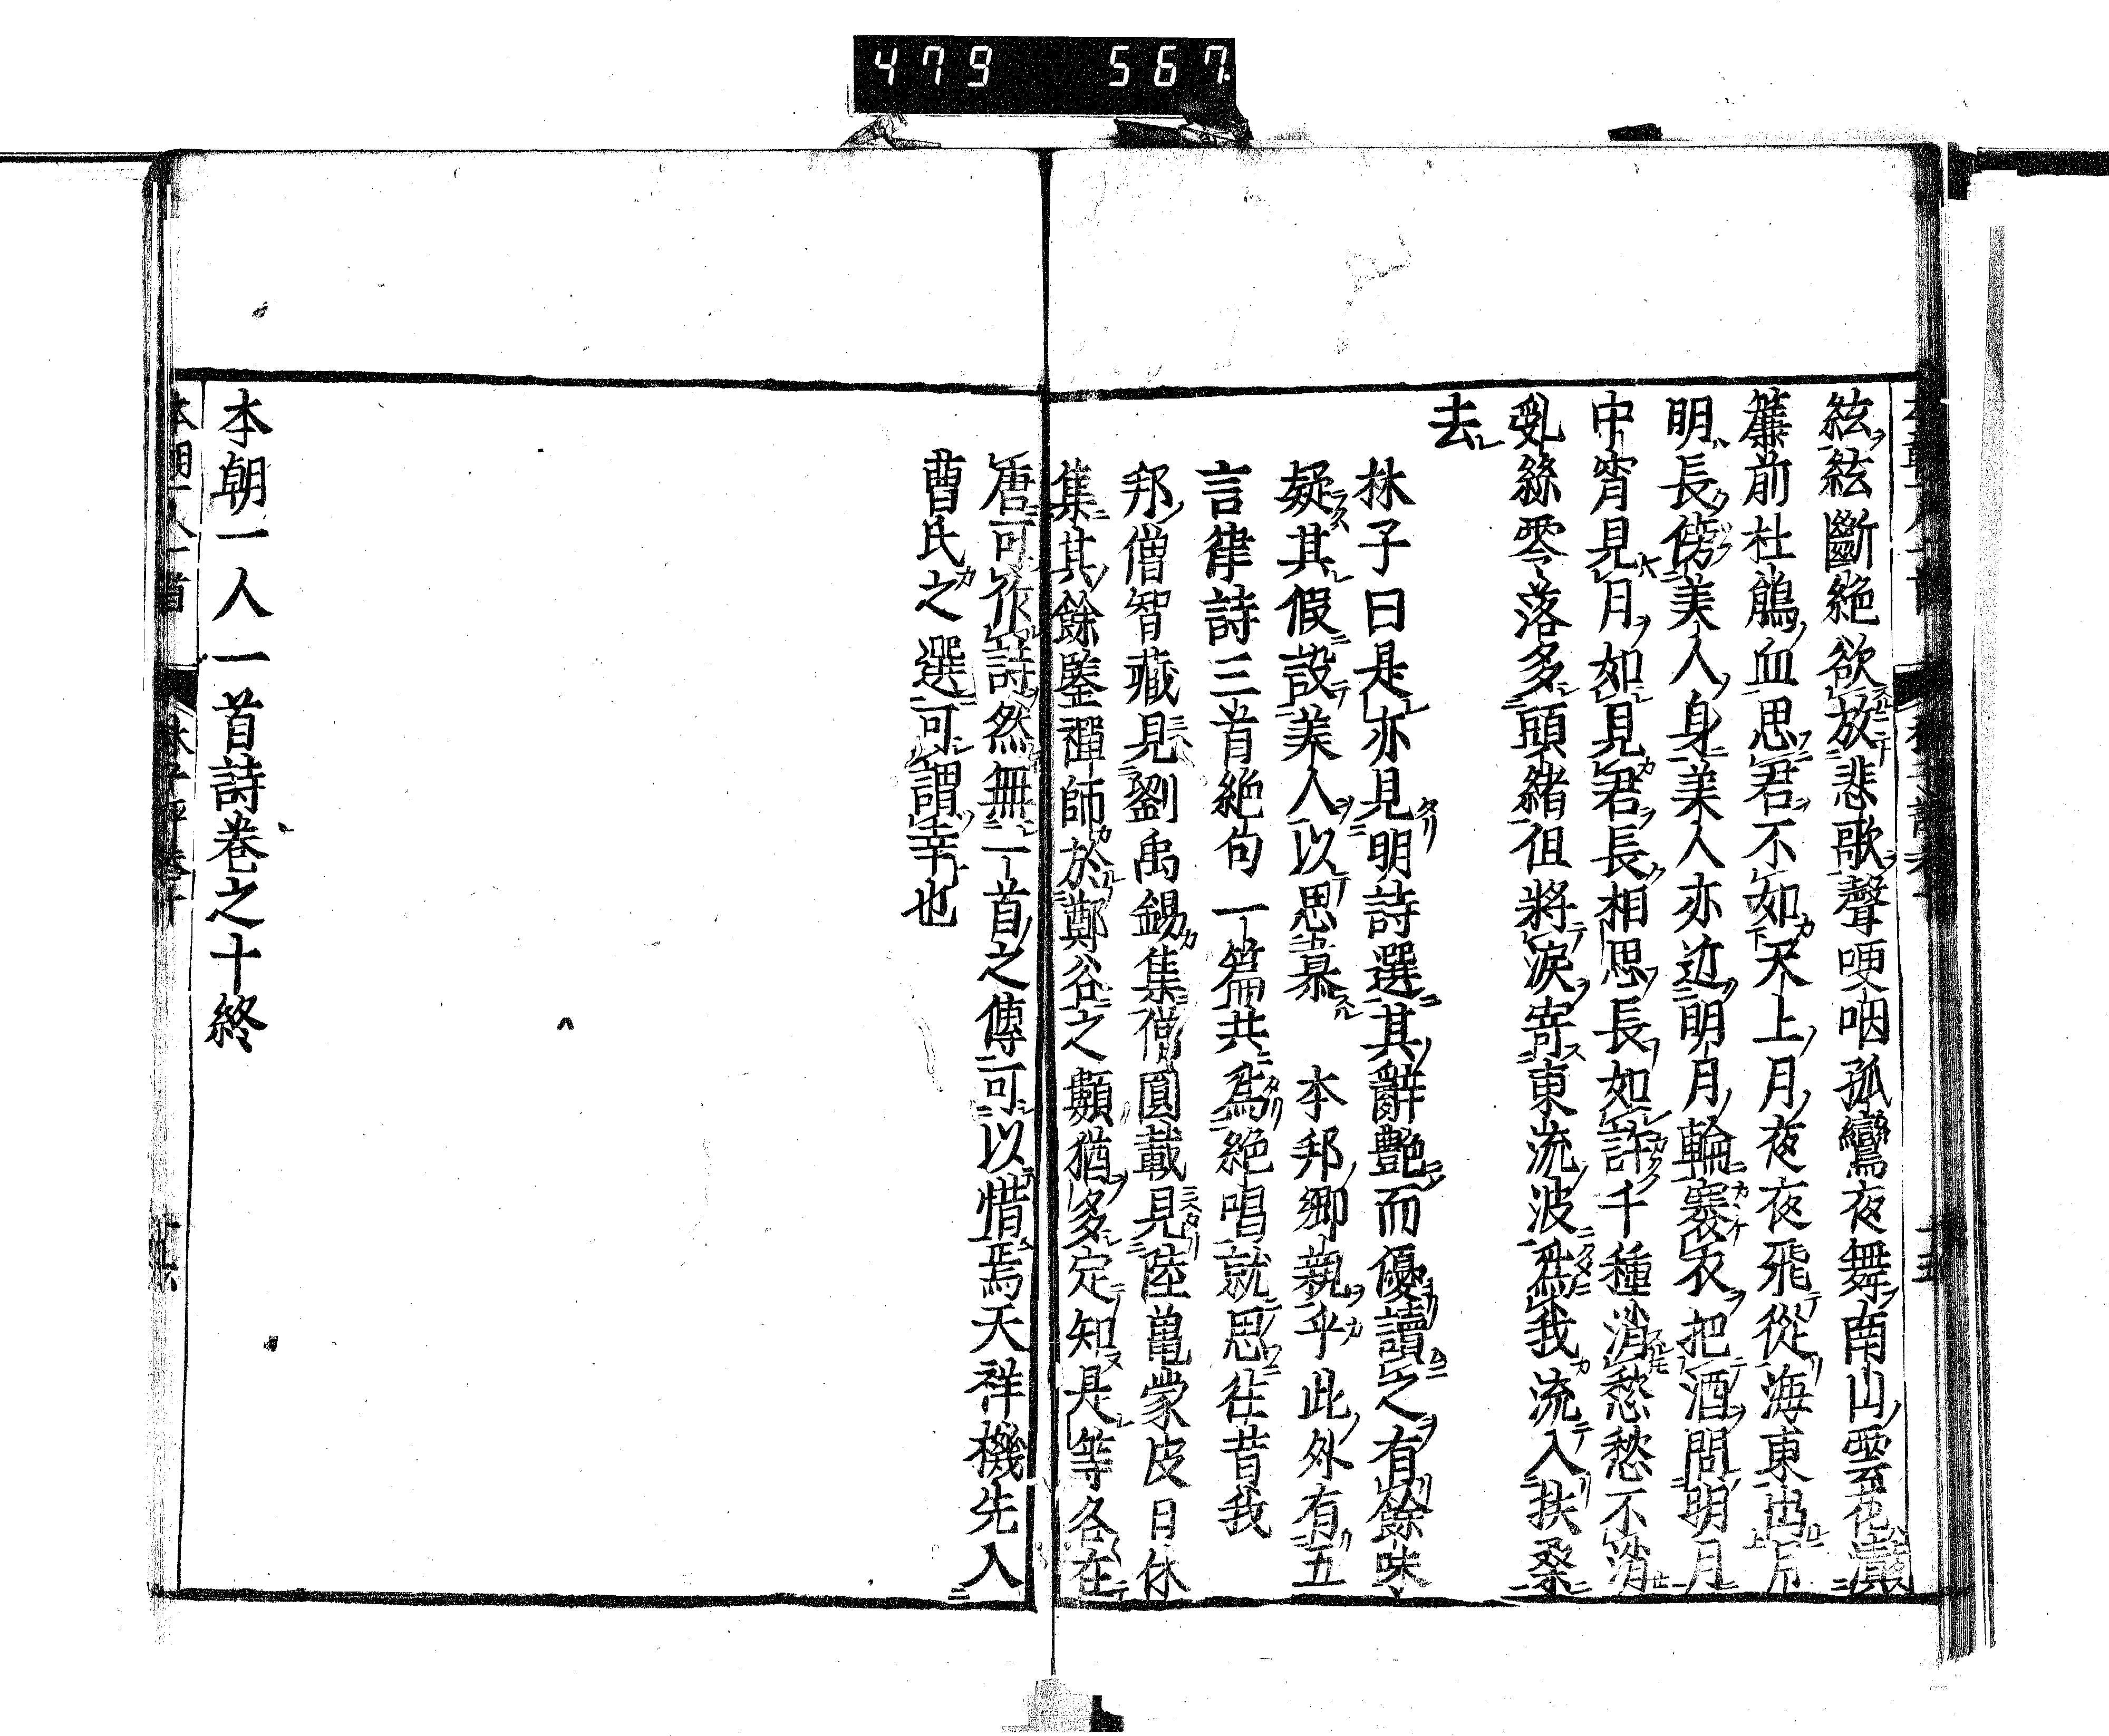 479 567
絃絃斷絶欲放悲歌聲哽咽孤鸞夜舞南山雲花濺
簾前杜鵑血思君不如天上月夜夜飛從海東出月
明長傍美人身美人亦近明月輪褰衣把酒問明月
中宵見月如見君長相思長如許千種消愁愁不消
亂絲零落多頭緒但將淚寄東流波爲我流入扶桑
去
林子曰是亦見明詩選其辭艶而優讀之有餘味
疑其假設美人以思慕 本邦卿親乎此外有五
言律詩三首絶句一篇共爲絶唱就思徃昔我
邦僧智藏見劉禹錫集僧圓載見陸龜蒙皮日休
集其餘鑒禪師於鄭谷之類猶多定知是等各在
唐可作詩然無一首之傳可以惜焉天祥機先入
曹氏之選可謂幸也
本朝一人一首詩卷之十終